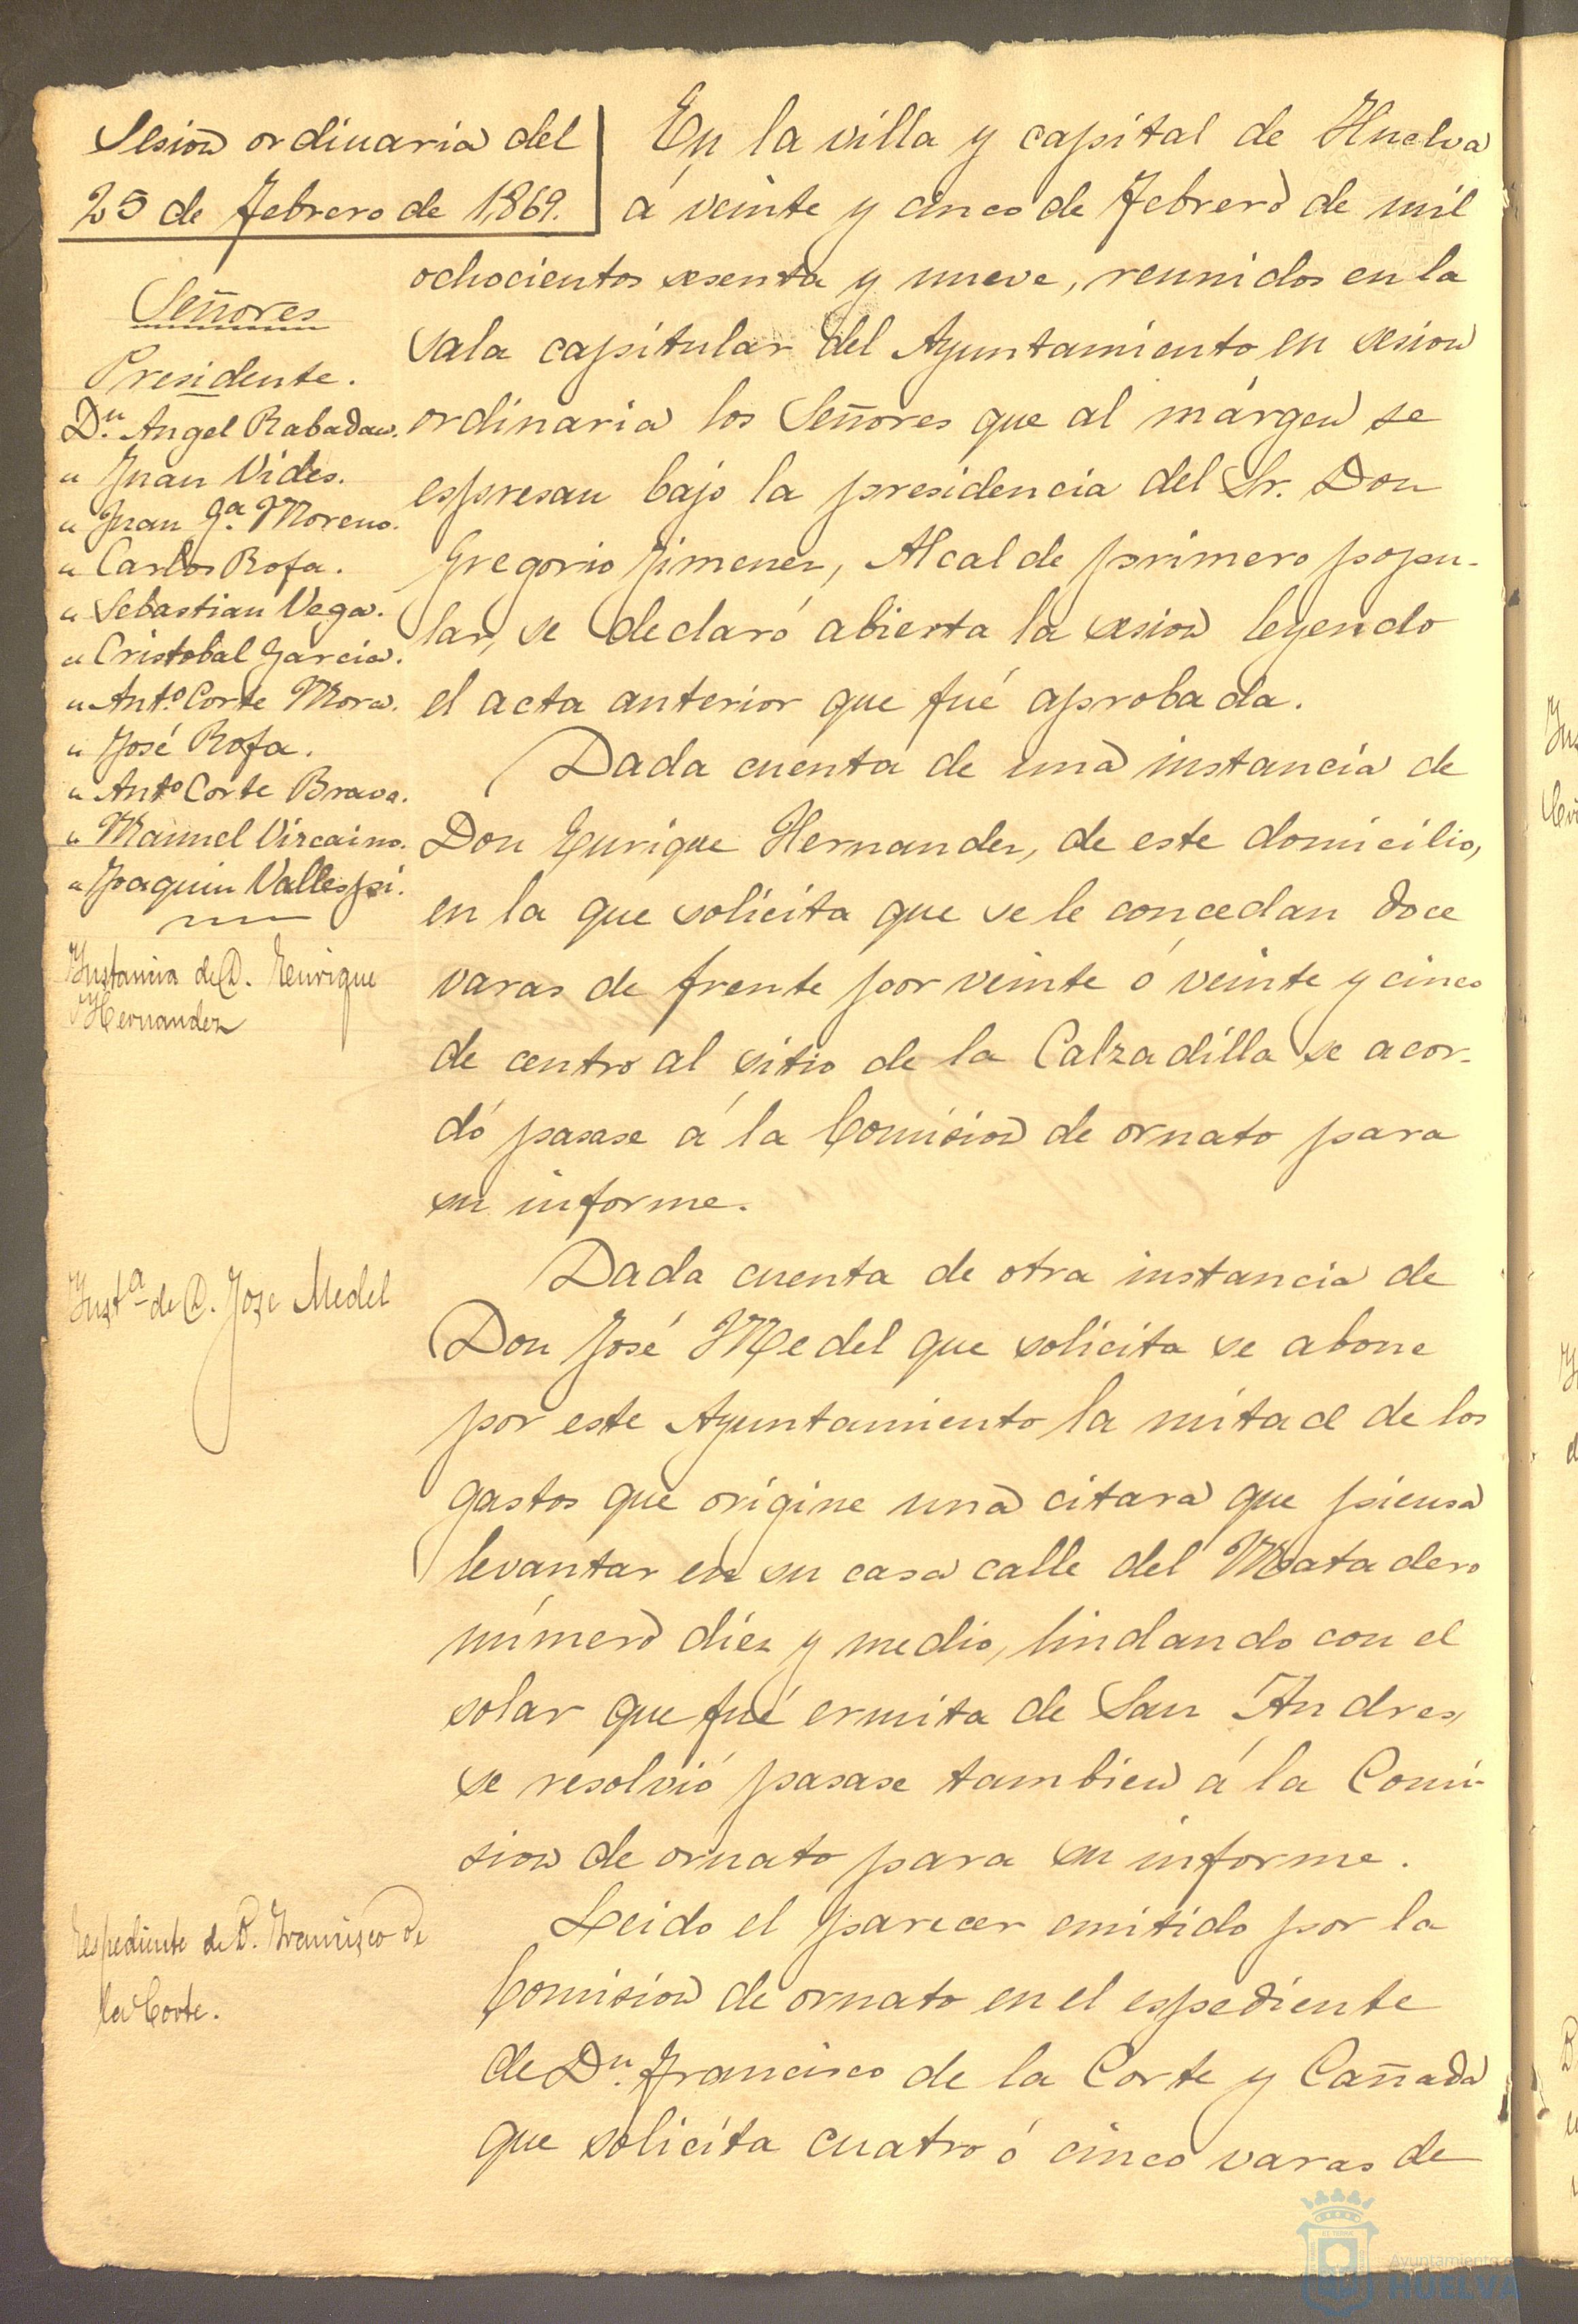 Sesion ordinaria del
25 de Febrero de 1,869.
Señores
Presidente.
Dn. Angel Rabadan.
" Juan Vides.
" Juan Ga. Moreno.
" Carlos Rofa.
" Sebastian Vega.
" Cristobal Garcia.
" Anto. Corte Mora.
" José Rofa.
" Anto Corte Bravo.
" Manuel Vizcaino.
" Joaquin Vallespi.
Instancia de D. Enrique
Hernandez
Insta de D. Jose Medel
Espediente de D. Francisco de
la Corte.
En la villa y capital de Huelva
á veinte y cinco de Febrero de mil
ochocientos sesenta y nueve, reunidos en la
sala capitular del Ayuntamiento en sesion
ordinaria los Señores que al márgen se
espresan bajo la presidencia del Sr. Don
Gregorio Jimenez, Alcalde primero popu-
lar, se declaró abierta la sesion leyendo
el acta anterior que fué aprobada.
Dada cuenta de una instancia de
Don Enrique Hernandez, de este domicilio,
en la que solicita que se le concedan doce
varas de frente por veinte ó veinte y cinco
de centro al sitio de la Calzadilla se acor-
dó pasase á la Comision de ornato para
su informe.
Dada cuenta de otra instancia de
Don José Medel que solicita se abone
por este Ayuntamiento la mitad de los
gastos que origine una citara que piensa
levantar en su casa calle del Matadero
número diez y medio, lindando con el
solar que fué ermita de San Andres,
se resolvió pasase tambien á la Comi-
sion de ornato para su informe.
Leido el parecer emitido por la
Comision de ornato en el espediente
de Dn. Francisco de la Corte y Cañada
que solicita cuatro ó cinco varas de
Ayuntamiento de
HUELVA